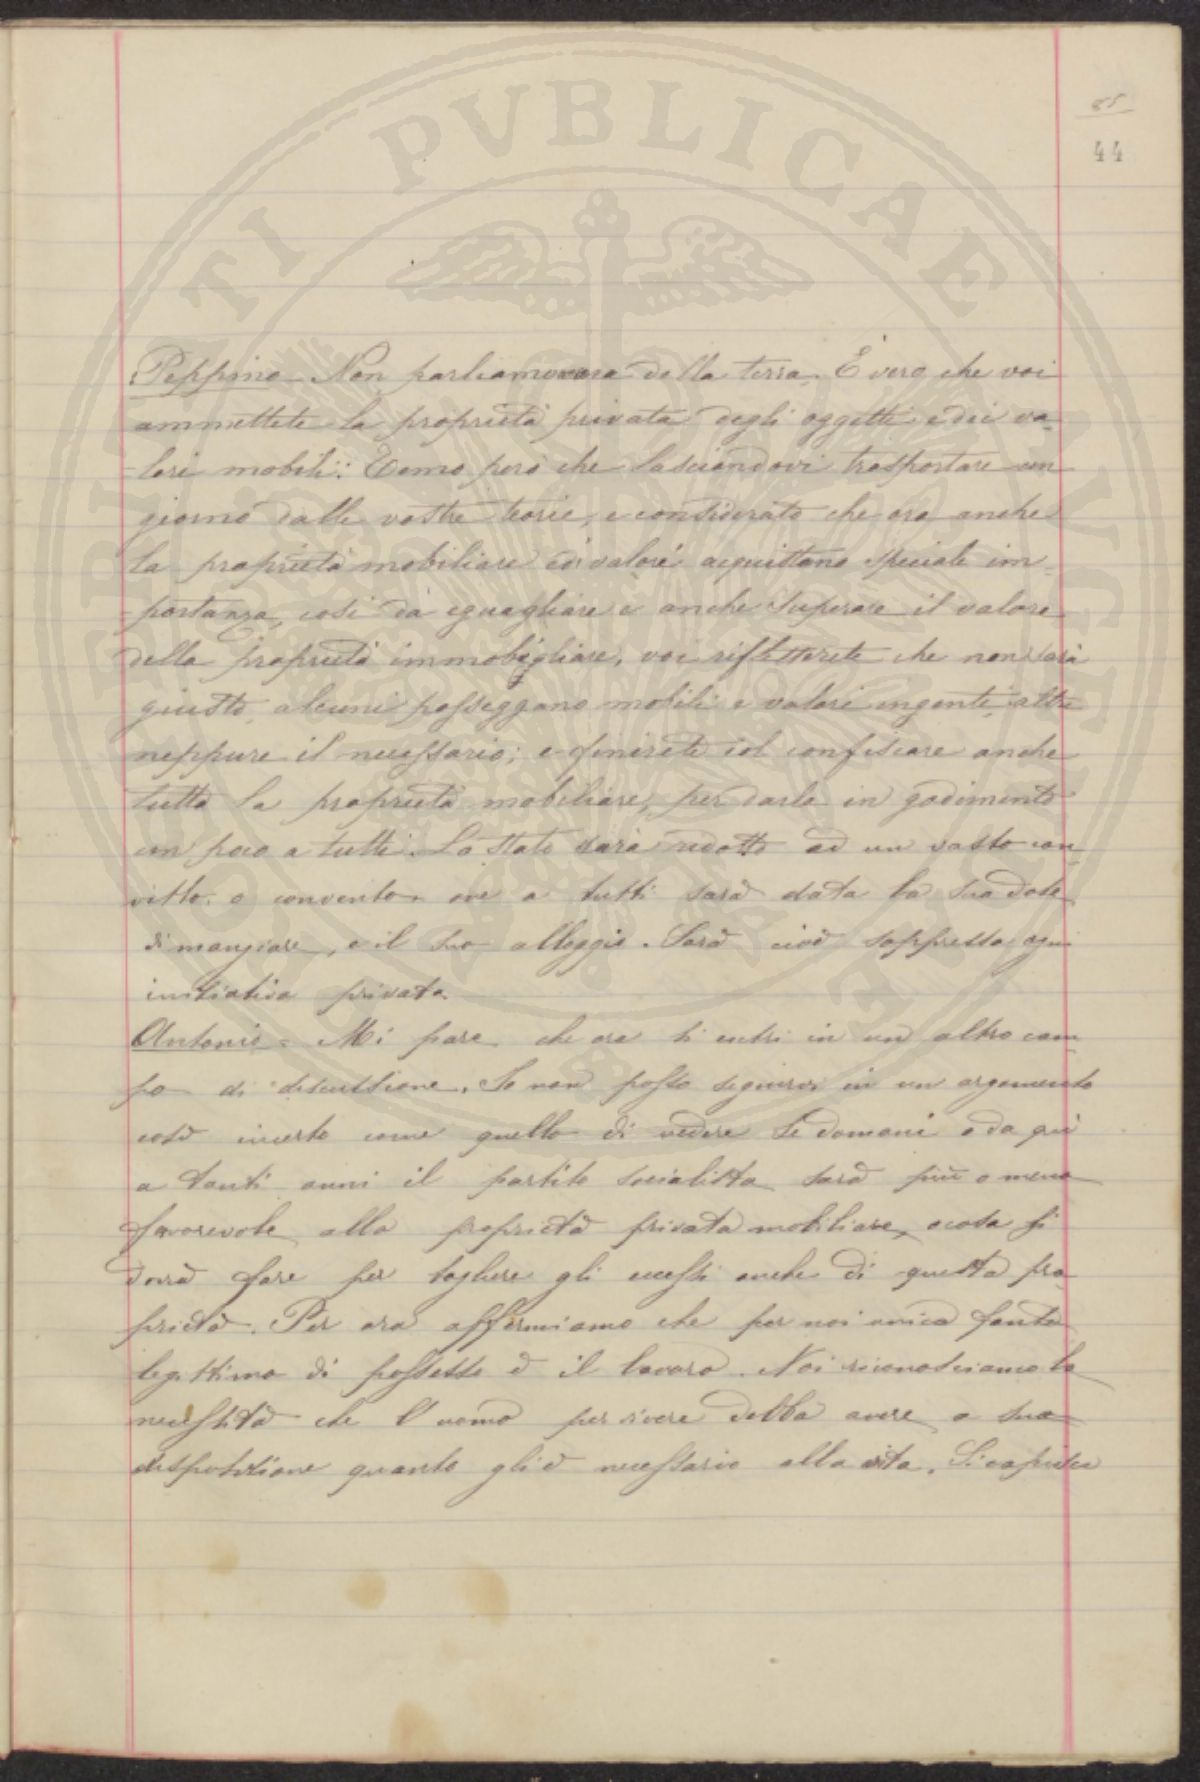 85
44
Peppino - Non parliamo ora della terra. È vero che voi
ammettete la proprietà privata degli oggetti e dei va-
lori mobili: Temo però che lasciandovi trasportare un
giorno dalle vostre teorie, e considerato che ora anche
la proprietà mobiliare ed i valori acquistano speciale im-
portanza, così da eguagliare e anche superare il valore
della proprietà immobigliare, voi rifletterete che non sarà
giusto, alcuni posseggano mobili e valori ingenti, altri
neppure il necessario; e finirete col confiscare anche
tutta la proprietà mobiliare, per darla in godimento
un poco a tutti. Lo stato sarà ridotto ad un vasto con-
vitto o convento ove a tutti sarà data la sua dose
di mangiare, e il suo alloggio. Sarà cioè soppressa ogni
iniziativa privata.
Antonio - Mi pare che ora si entri in un altro cam-
po di discussione. Io non posso seguirvi in un argomento
così incerto come quello di vedere se domani o da qui
a tanti anni il partito socialista sarà più o meno
favorevole alla proprietà privata mobiliare, o cosa si
dovrà fare per togliere gli eccessi anche di questa pro-
prietà. Per ora affermiamo che per noi unica fonte
legittima di possesso è il lavoro. Noi riconosciamo la
necessità che l'uomo per vivere debba avere a sua
disposizione quanto gli è necessario alla vita. Si capisce
PVBLICAE